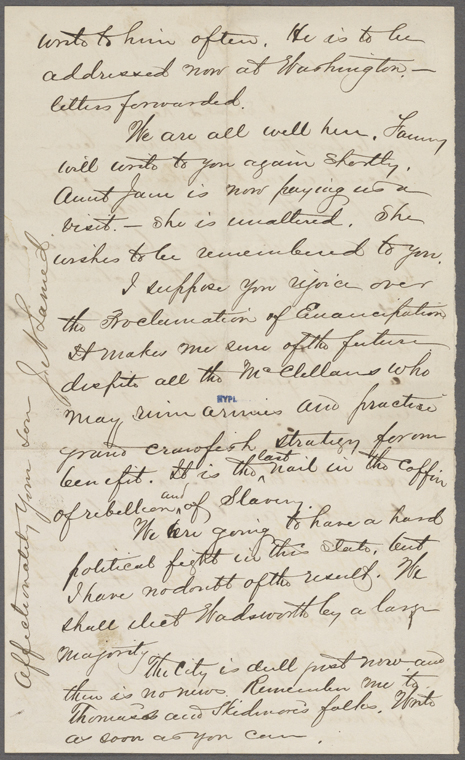 write to him often. He is to be
addressed now at Washington. —
letters forwarded.
We are all well here. Fanny
will write to you again shortly.
Aunt Jane is now paying us a
visit. — She is unaltered. She
wishes to be remembered to you.
I suppose you rejoice over
the Proclamation of Emancipation
It makes me sure of the future
despite all the McClellans who
may ruin armies and practise
NYPL
grand crawfish strategy for our
benefit. It is the last nail in the coffin
of rebellion and of Slavery.
We are going to have a hard
political fight in this State, but
I have no doubt of the result. We
shall elect Wadsworth by a large
majority
The City is dull just now and
there is no news. Remember me to
Thomas's and Skidmore's folks. Write
as soon as you can.
Affectionately Your Son